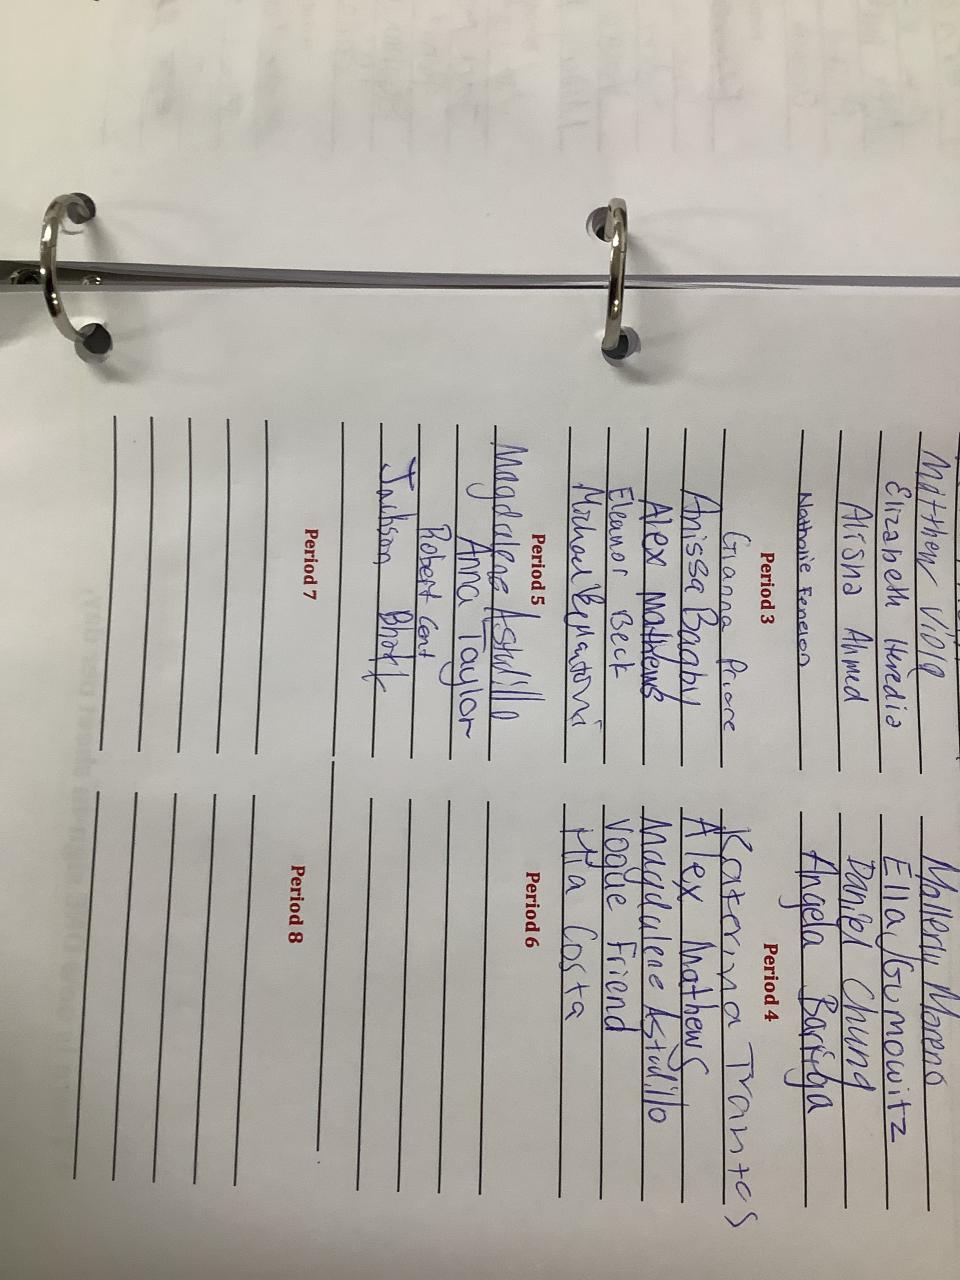 Matthew Viola
Elizabeth Heredia
Alisha Ahmed
Nathalie
Mallerly Moreno
Ella Gumowitz
Daniel Chund
Angela Barriga
Period 3
Gianna Priore
Anissa Bagby
Alex Mathews
Eleanor Beck
Michael
Period 4
Katerina Trantos
Alex Mathews
Magdalene Astudillo
Vogue Friend
Mia Costa
Period 5
Magdalene Astudillo
Anna Taylor
Robert Cont
Jackson Bhatt
Period 6
Period 7
Period 8